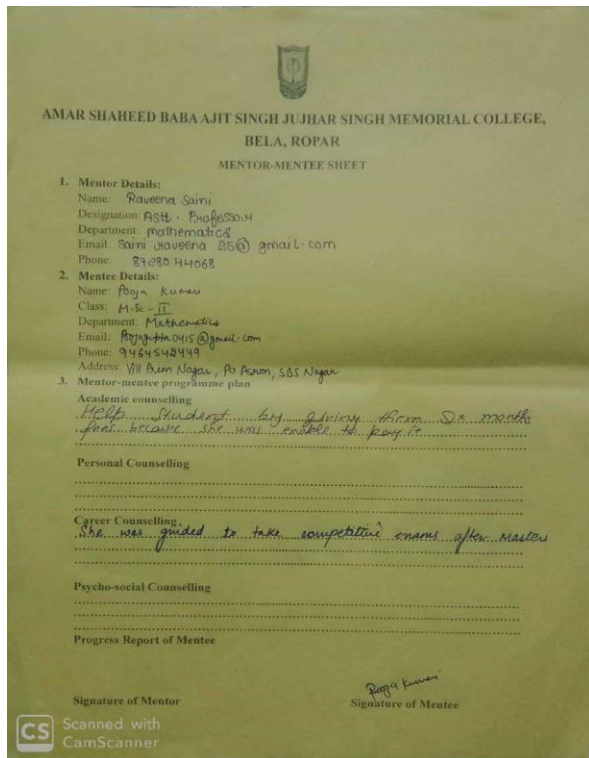 AMAR SHAHEED BABA AJIT SINGH JUJHAR SINGH MEMORIAL COLLEGE,
BELA, ROPAR
MENTOR-MENTEE SHEET
1. Mentor Details:
Name: Raveena Saini
Designation: Astt. Professor
Department: mathematics
Email: Saini raveena 25@ gmail.com
Phone:
2. Mentee Details:
Name: Pooja Kumari
Class: M.Sc - II
Department: Mathematics
Email: 0415@gmail.com
Phone: 9464542449
Address: Vill Prem Nagar, Po Asron, SBS Nagar
3. Mentor-mentee programme plan
Academic counselling
Help Student by giving them months
because she was enable to pay it
Personal Counselling
Career Counselling
She was guided to take competitive exams after Masters
Psycho-social Counselling
Progress Report of Mentee
Pooja Kumari
Signature of Mentor Signature of Mentee
CS Scanned with
CamScanner